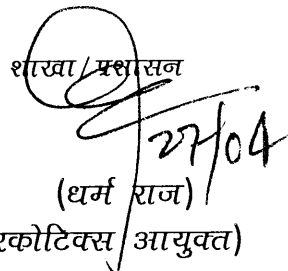 शाखा/प्रशासन
27/04
(धर्म राज)
रकोटिक्स आयुक्त)